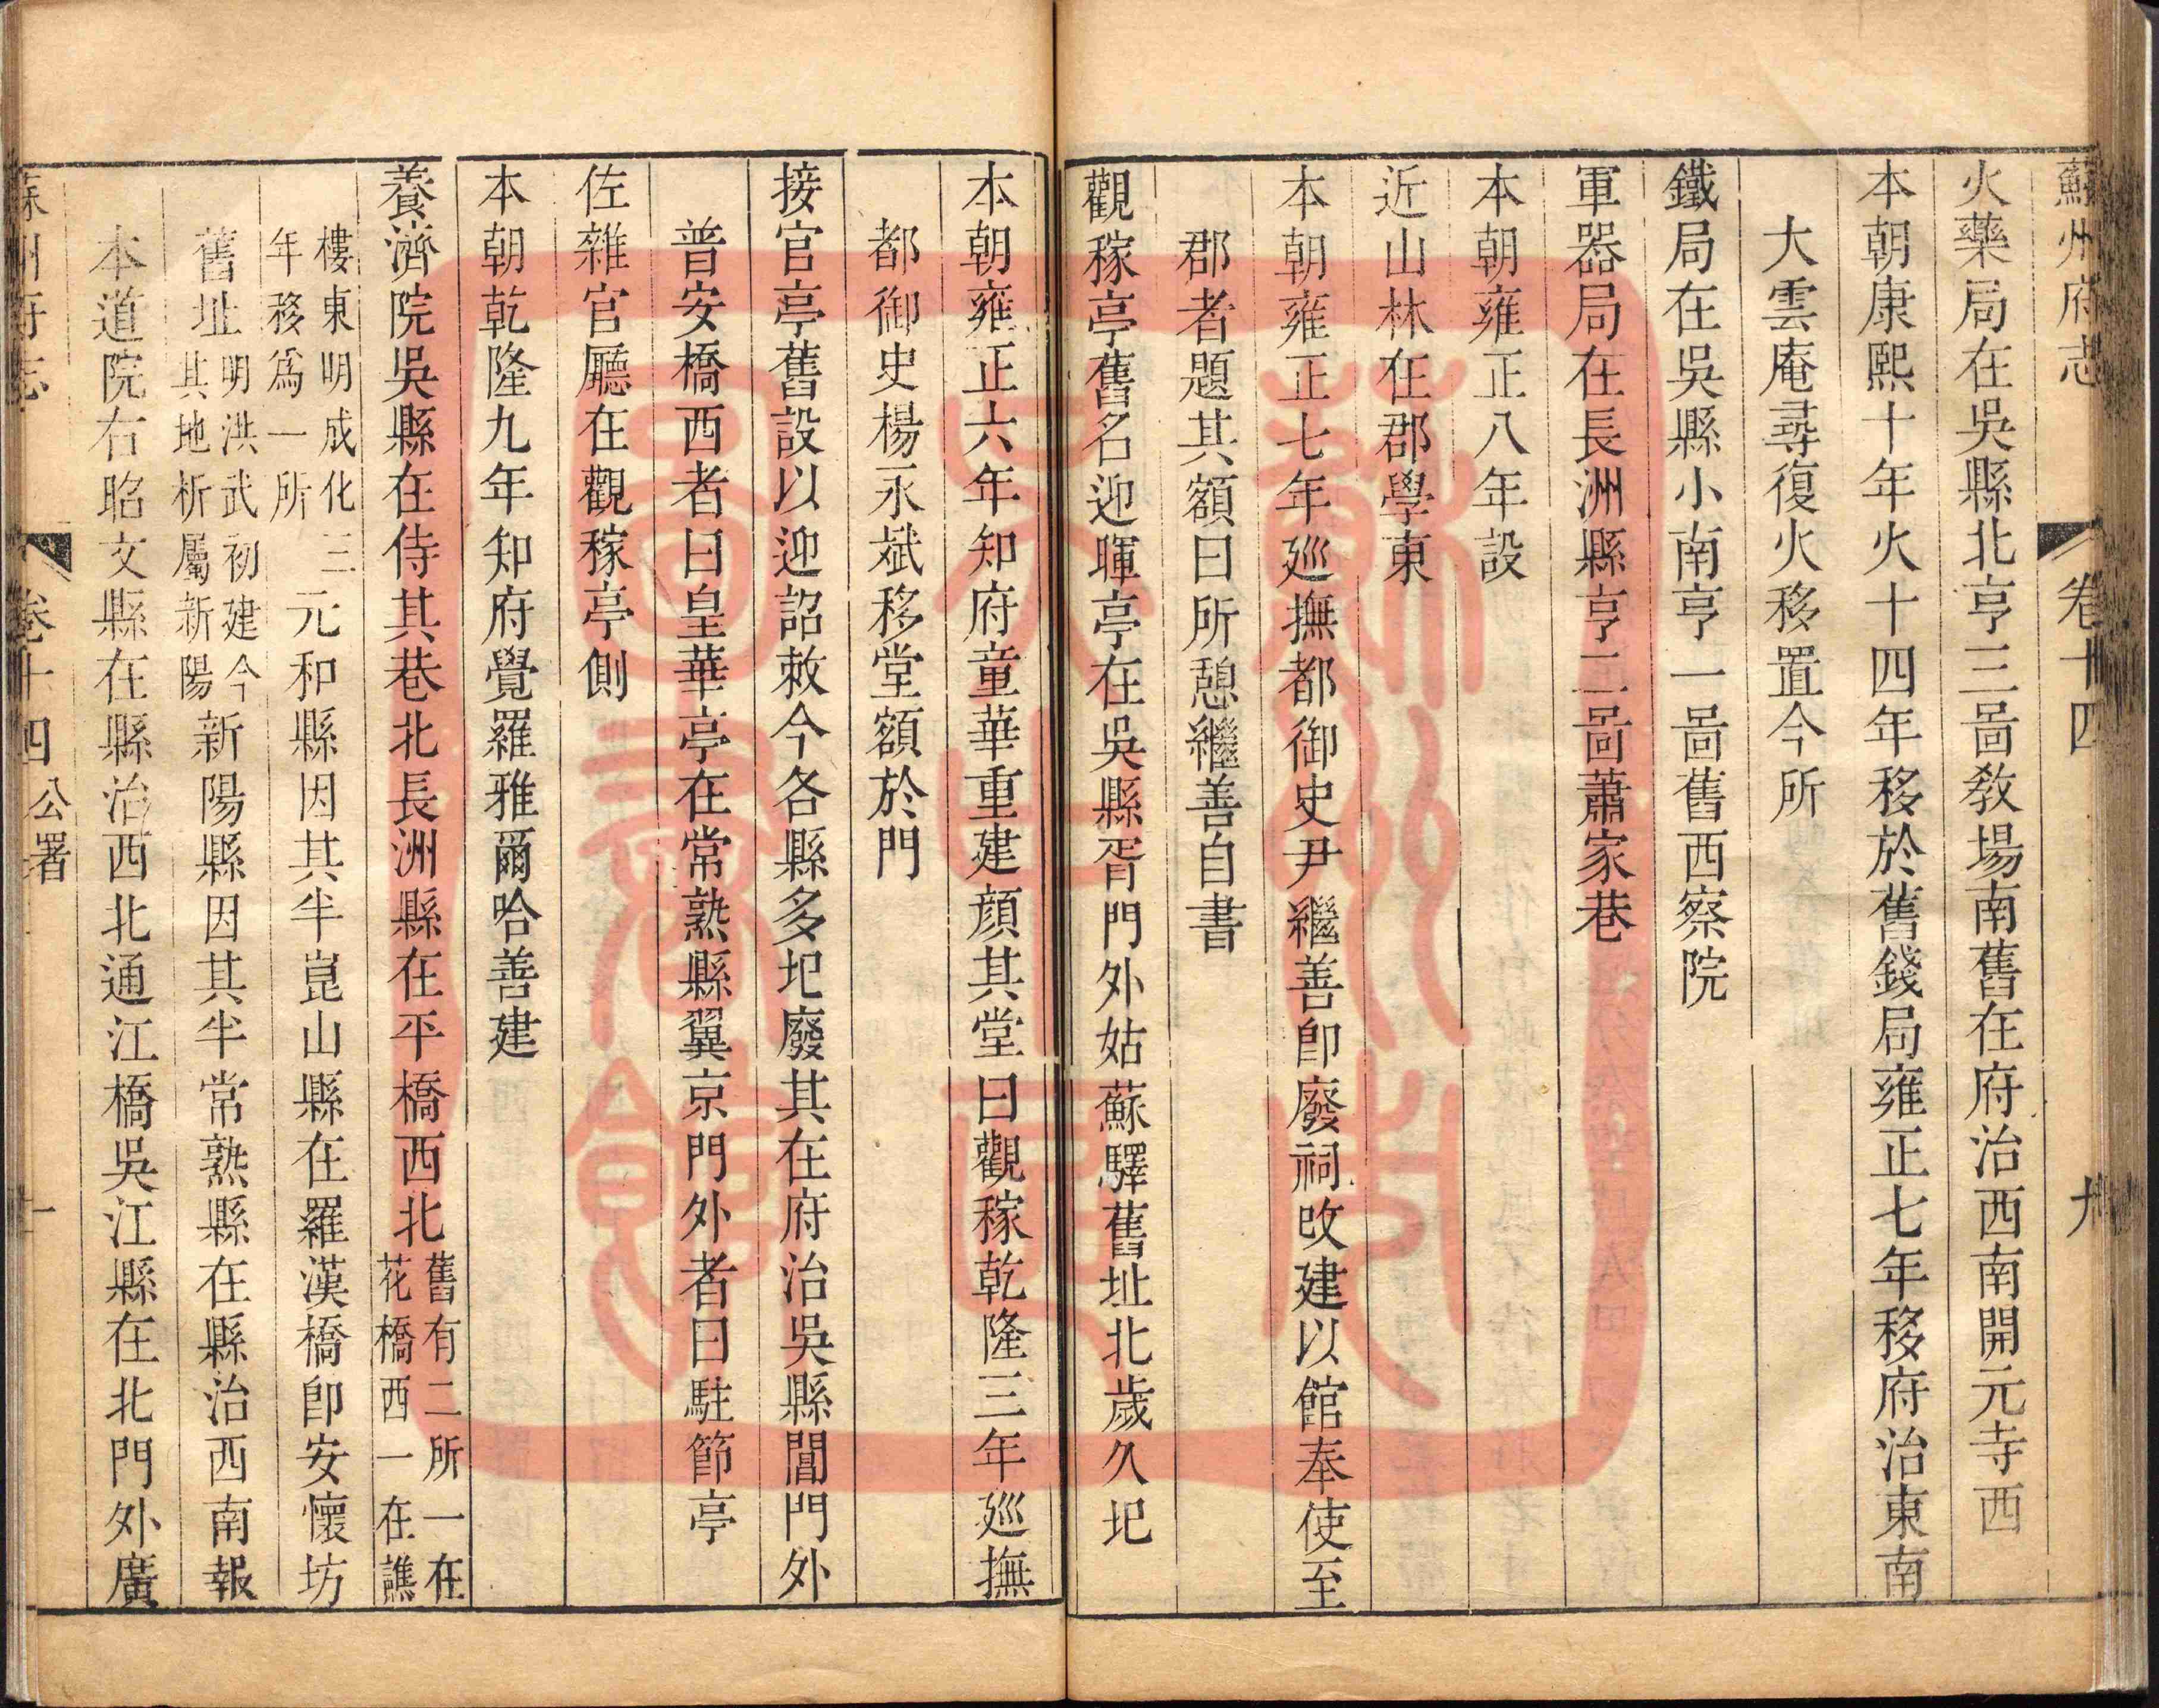 蘇州府志 卷十四 九
火藥局在吳縣北亨三啚敎場南舊在府治西南開元寺西
本朝康熙十年火十四年移於舊錢局雍正七年移府治東南
大雲庵尋復火移置今所
鐵局在吳縣小南亨一啚舊西察院
軍器局在長洲縣亨二啚蕭家巷
本朝雍正八年設
近山林在郡學東
本朝雍正七年廵撫都御史尹繼善卽廢祠改建以館奉使至
郡者題其額曰所憩繼善自書
觀稼亭舊名迎暉亭在吳縣胥門外姑蘇驛舊址北歲久圮
本朝雍正六年知府童華重建顔其堂曰觀稼乾隆三年廵撫
都御史楊永斌移堂額於門
接官亭舊設以迎詔敕今各縣多圮廢其在府治吳縣閶門外
普安橋西者曰皇華亭在常熟縣翼京門外者曰駐節亭
佐雜官廳在觀稼亭側
本朝乾隆九年知府覺羅雅爾哈善建
養濟院吳縣在侍其巷北長洲縣在平橋西北舊有二所一在花橋西一在譙
樓東明成化三年移爲一所元和縣因其半崑山縣在羅漢橋卽安懷坊
舊址明洪武初建今其地析屬新陽新陽縣因其半常熟縣在縣治西南報
本道院右昭文縣在縣治西北通江橋吳江縣在北門外廣
蘇州府志 卷十四 公署